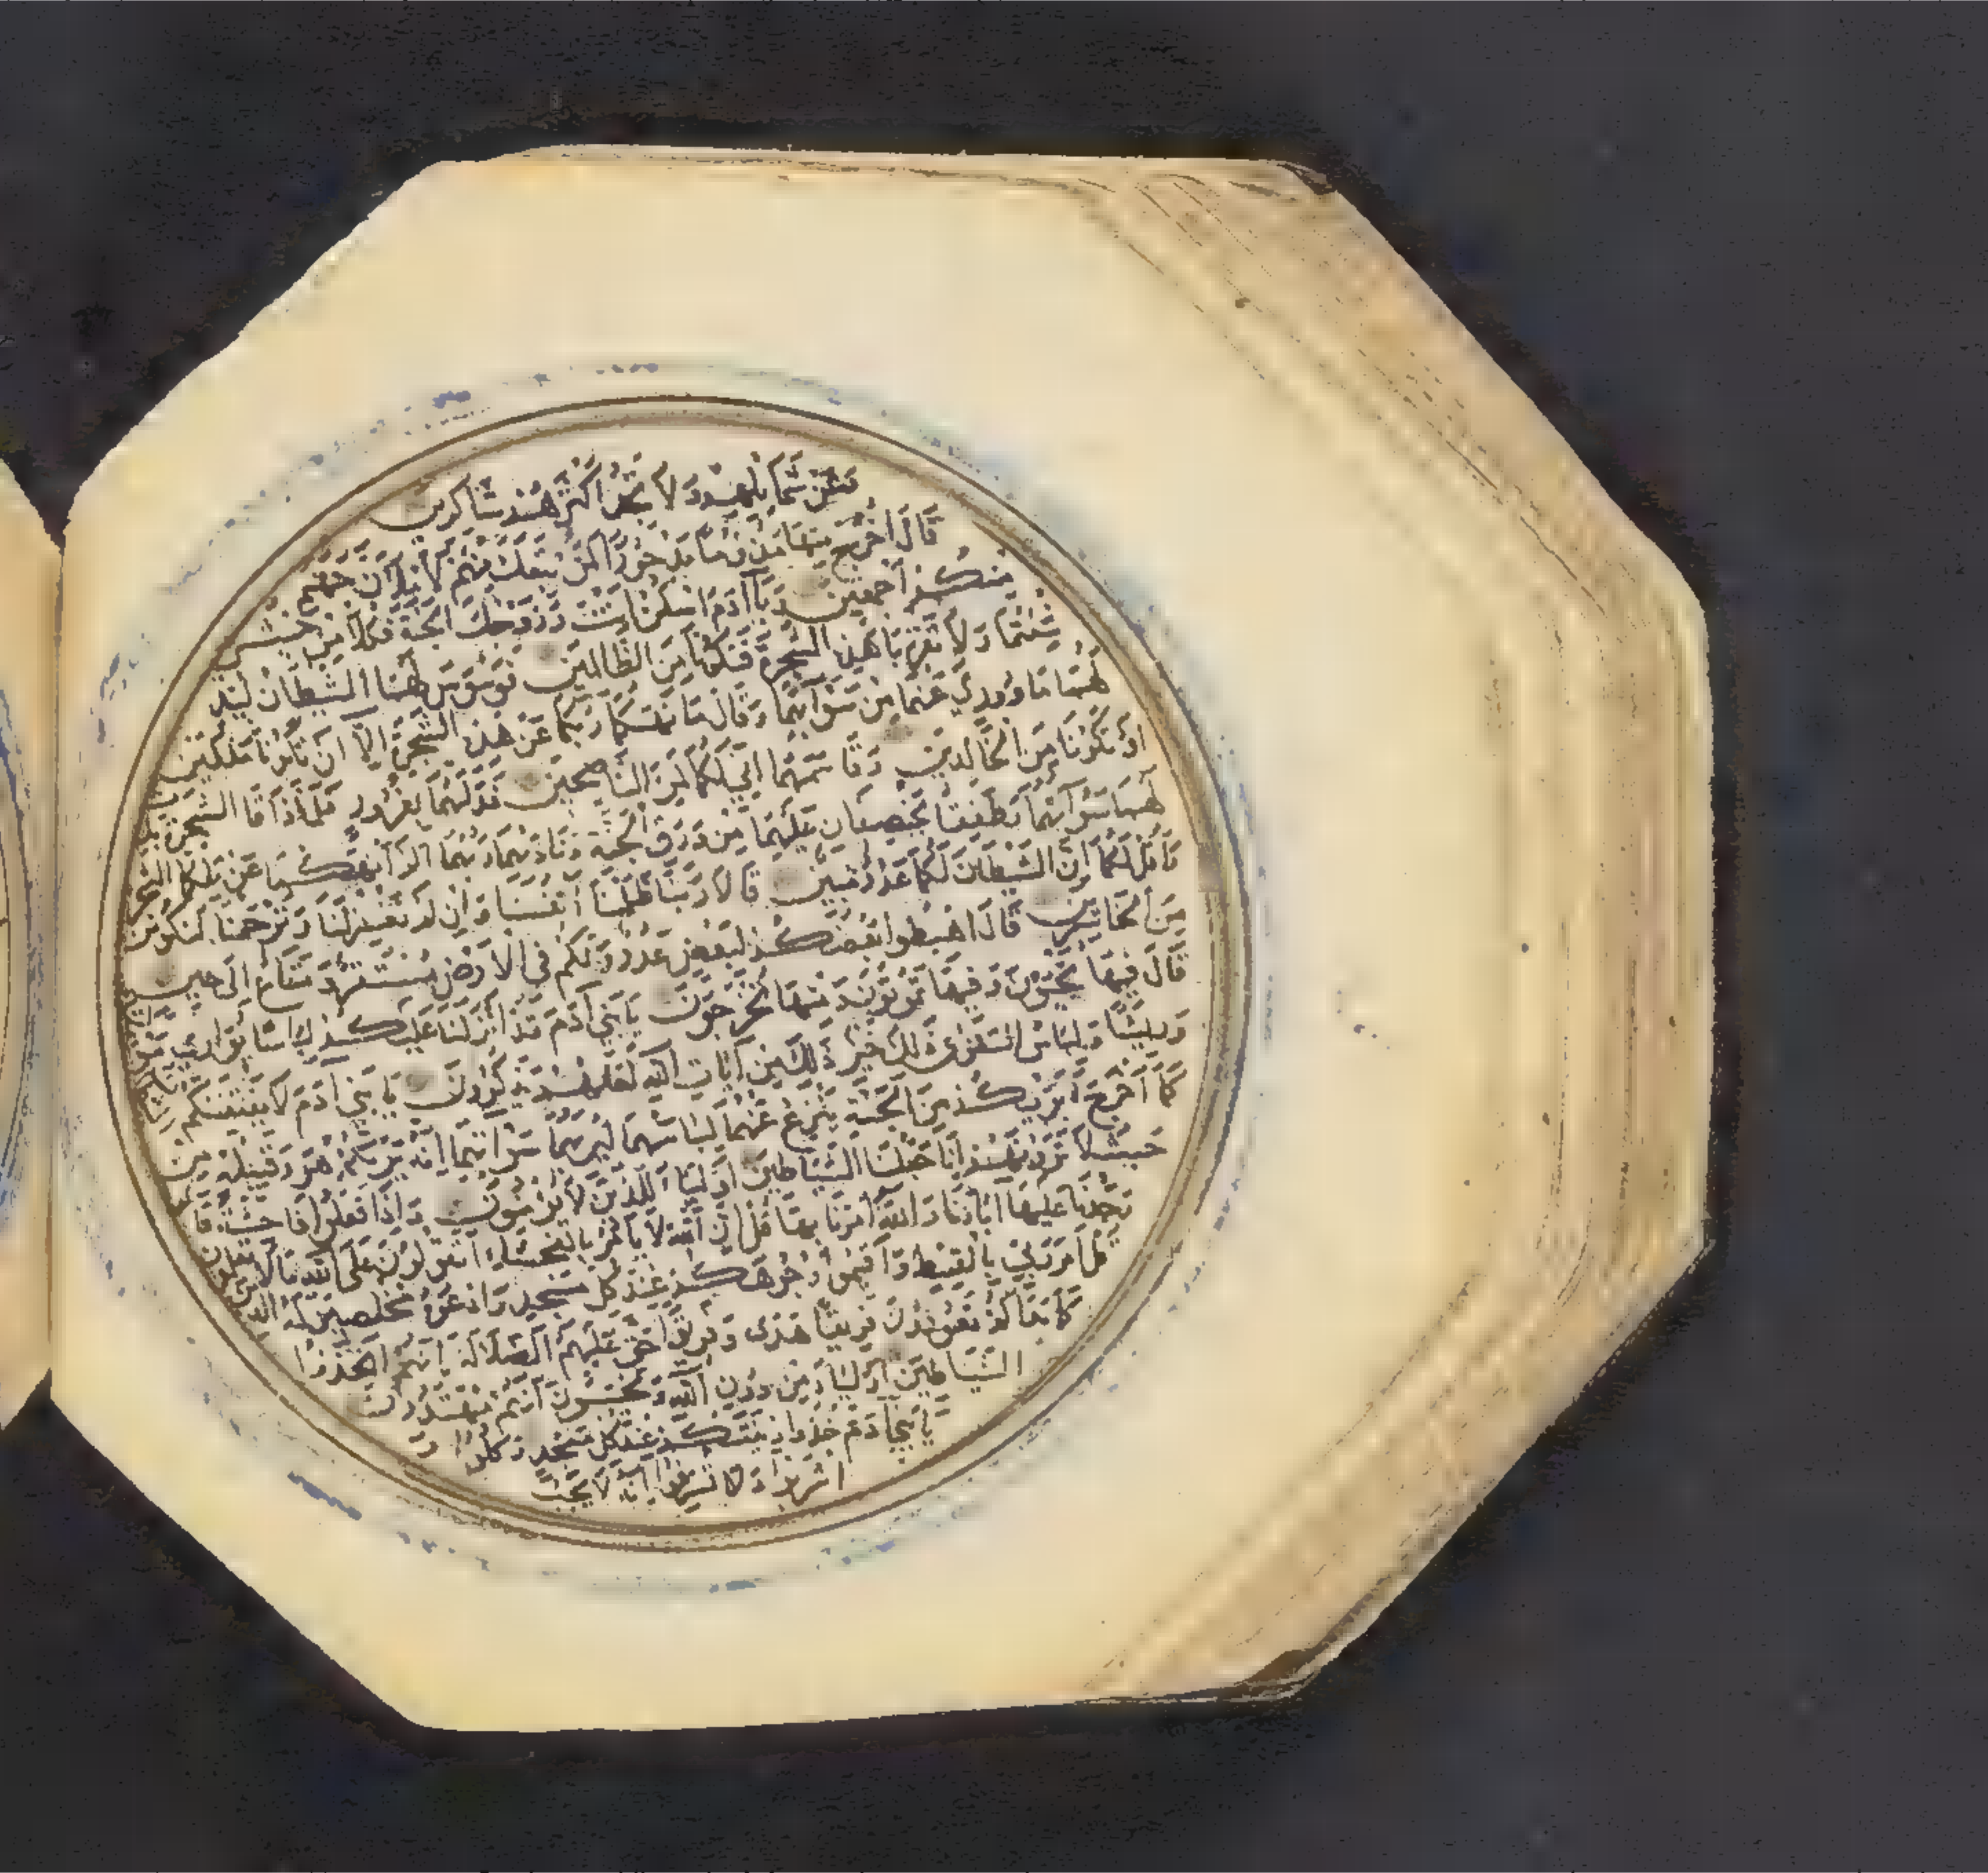 وعن شمائلهم ولا تجد اكثرهم شاكرين
قال اخرج منها مذؤما مدحورا لمن تبعك منهم لاملان جهنم
منكم اجمعين ويا آدم اسكن انت وزوجك الجنة فكلا من حيث
شئتما ولا تقربا هذه الشجرة فتكونا من الظالمين فوسوس لهما الشيطان ليبد
لهما ما وورى عنهما من سوآتهما وقال ما نهيكما ربكما عن هذه الشجرة الا ان تكونا ملكين
او تكونا من الخالدين وقاسمهما انى لكما لمن الناصحين فدليهما بغرور فلما ذاقا الشجرة بد
لهما سوآتهما وطفقا يخصفان عليهما من ورق الجنة وناديهما ربهما الم انهكما عن تلكما الشجر
واقل لكما ان الشيطن لكما عدو مبين قالا ربنا ظلمنا انفسنا وان لم تغفر لنا وترحمنا لنكونن
من الخاسرين قال اهبطوا بعضكم لبعض عدو ولكم فى الارض مستقر ومتاع الى حين
قال فيها تحيون وفيها تموتون ومنها تخرجون يا بنى آدم قد انزلنا عليكم لباسا يوارى
وريشا ولباس التقوى ذلك خير ذلك من آيات الله لعلهم يذكرون يا بنى آدم لا يفتننكم
كما اخرج ابويكم من الجنة ينزع عنهما لباسهما ليريهما سوآتهما انه يريكم هو وقبيله من
حيث لا ترونهم انا جعلنا الشياطين اولياء للذين لا يؤمنون واذا فعلوا فاحشة قا
وجدنا عليها آباءنا والله امرنا بها قل ان الله لا يأمر بالفحشاء اتقولون على الله ما لا تعلمون
قل امر ربى بالقسط واقيموا وجوهكم عند كل مسجد وادعوه مخلصين له الد
كما بدأكم تعودون فريقا هدى وفريقا حق عليهم الضلالة انهم اتخذوا
الشياطين اولياء من دون الله ويحسبون انهم مهتدون
يا بنى آدم خذوا زينتكم عند كل مسجد وكلوا و
اشربوا ولا تسرفوا انه لا يحب